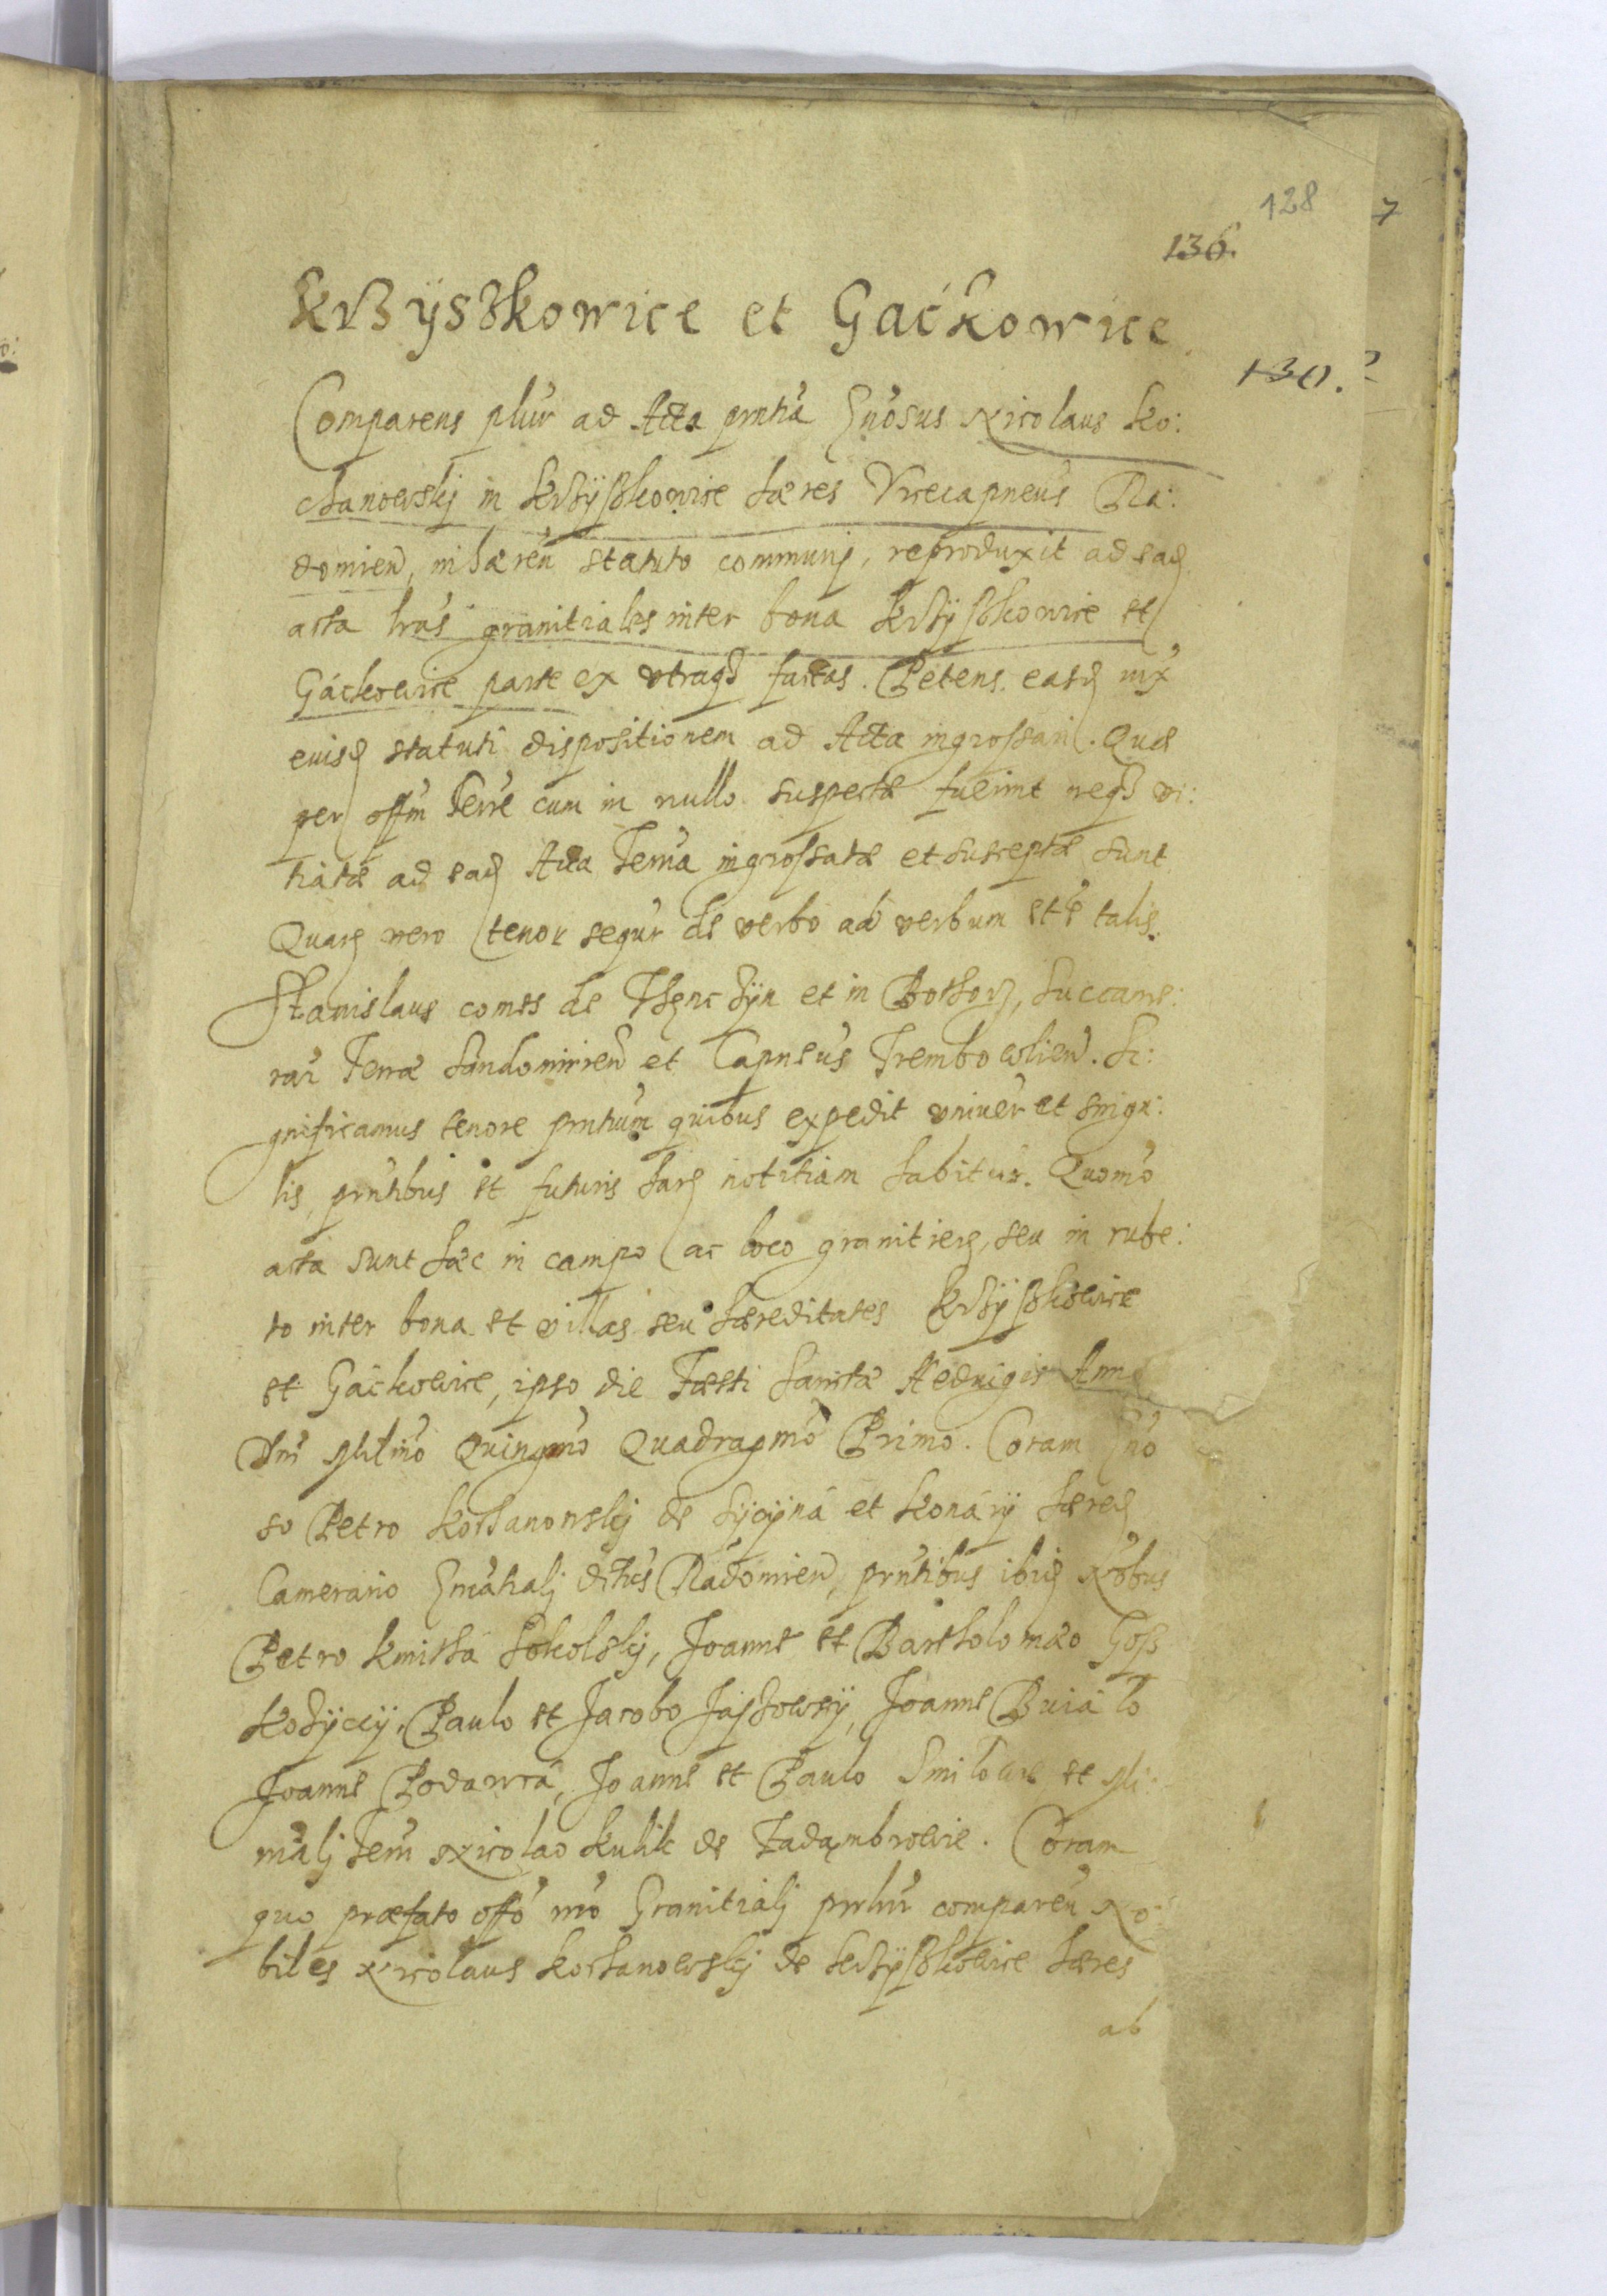 128 7
136.
Krzÿszkowice et Gaćkowice
130.
Comparens plŭr ad Acta prntia Gnŏsus Nicolaus Ko:
chanowskj in Krzÿszkowice hæres Vicecapneus Ra:
domien, inhæren statuto communj, reproduxit ad ead
acta lras granitiales inter bona Krzÿszkowice et
Gáckowice parte ex vtraq facias. Petens easd iux
eiusd statuti dispositionem ad Acta ingrossari. Quæ
per offm terre cum in nullo suspectæ fuerint neq vi:
tiatæ ad ead Acta Terria ingrossatæ et susceptæ sunt
Quar vero tenor sequr de verbo ad verbum et e talis.
Stanislaus comes de Thencżÿn et in Bothorz, succame:
rari Terræ Sandomirien et Capneus Trembowlien. Si:
gnificamus tenore prntium quibus expedit vniuer et singu:
lis, prntibus et futuris har notitiam habitur. Quomo
acta sunt hæc in campo ac loco granitier, seu in rube:
to inter bona et villas seu hæreditates Krzÿszkowice
et Gáckowice, ipso die Festi Sanctæ Heduigis Anno
Dni Milmo Quingmo Quadragmo Primo. Coram Gno
so Petro Kochanowskj de Sÿcÿná et Konárÿ hæred
Camerario Gnialj dctus Radomien, prntibus ibid Nobus
Petro Kmitha Sokolskj, Joanne et Bartholomæo Goss
Kozÿccÿ, Paulo et Jacobo Jastowscÿ, Joanne Buiáło
Joanne Podawcá, Joanne et Paulo Smiłowie et Mi:
nialj terri Nicolao Kulik de Zadąmbrowie. Coram
quo præfato offo nro Granitialj prlnr comparen No:
biles Nicolaus Kochanowskj de Krzÿszkowice hæres
ab